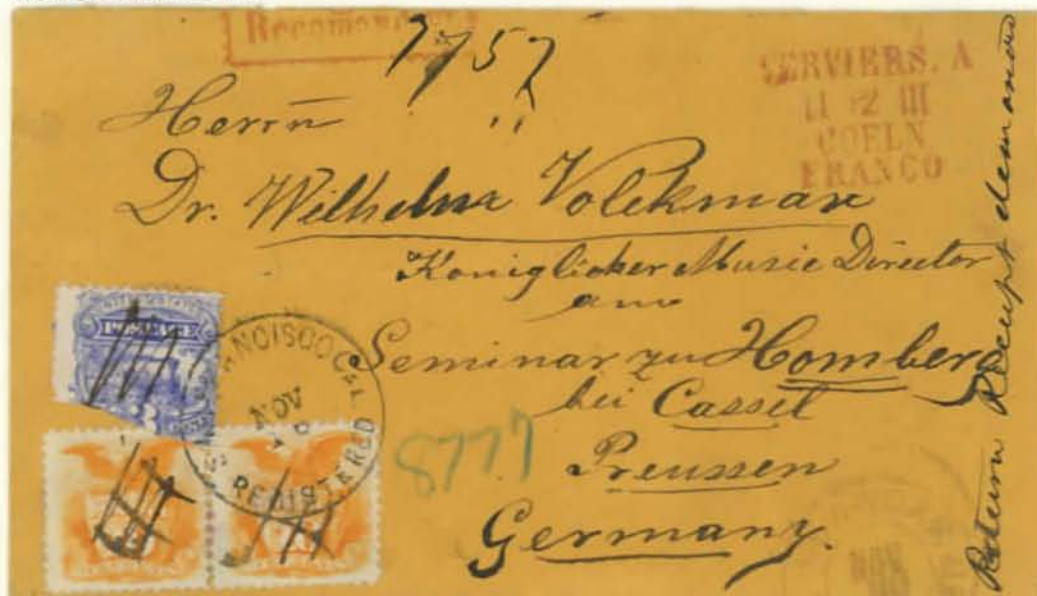 Recoman
7757
VERVIERS. A
11 12 III
COELN
FRANCO
Herrn
Dr. Wilhelm Volckmar
Königlicher Music Director
am
Seminar zu Homberg
bei Cassel
Preussen
Germany.
Return Receipt demanded
8777
POSTAGE
NCISCO CAL
NOV
REGISTERED
NOV